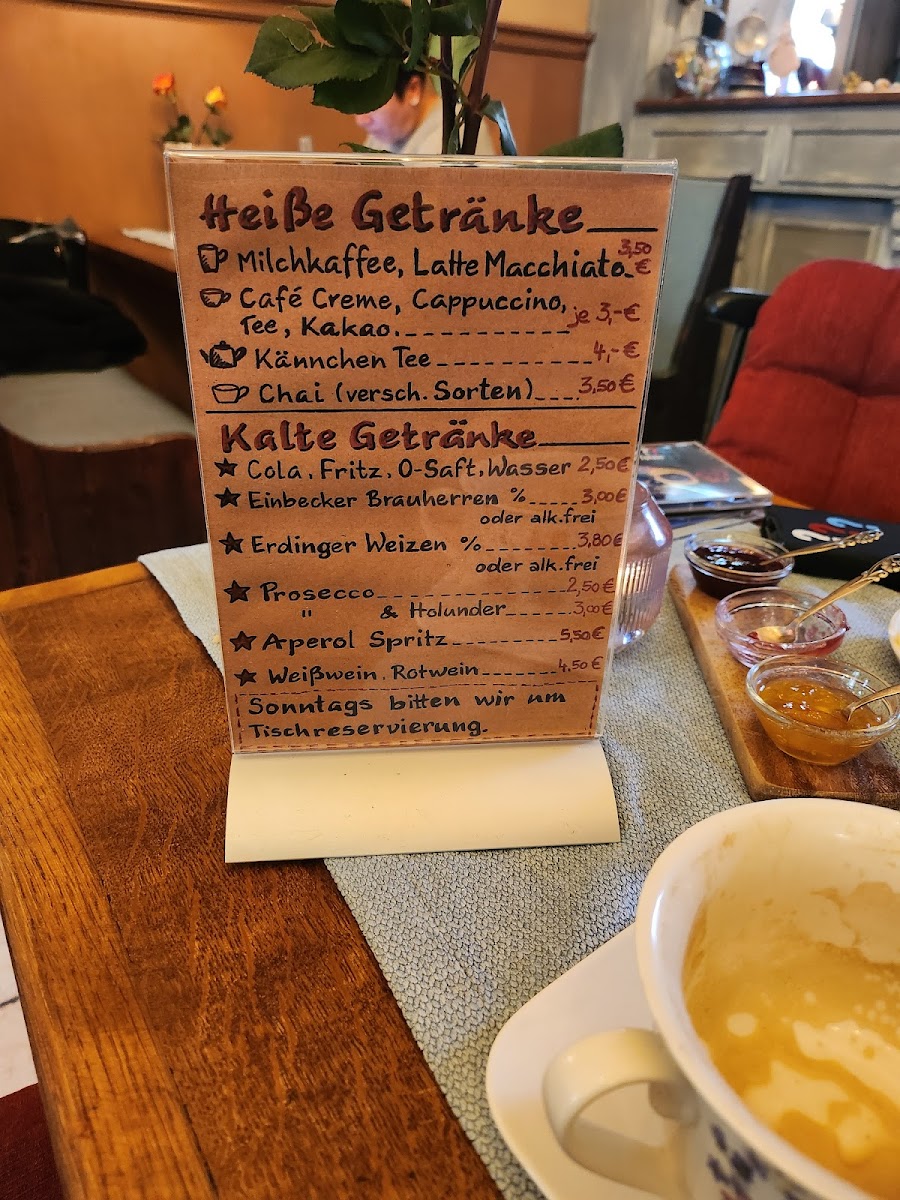 Heiße Getränke
Milchkaffee, Latte Macchiato 3,50 €
Café Creme, Cappuccino,
Tee, Kakao. je 3,-€
Kännchen Tee 4,-€
Chai (versch. Sorten) 3,50€
Kalte Getränke
Cola, Fritz, O-Saft, Wasser 2,50€
Einbecker Brauherren % 3,00€
oder alk.frei
Erdinger Weizen % 3,80€
oder alk.frei
Prosecco 2,50€
" & Holunder 3,00€
Aperol Spritz 5,50€
Weißwein, Rotwein 4,50€
Sonntags bitten wir um
Tischreservierung.